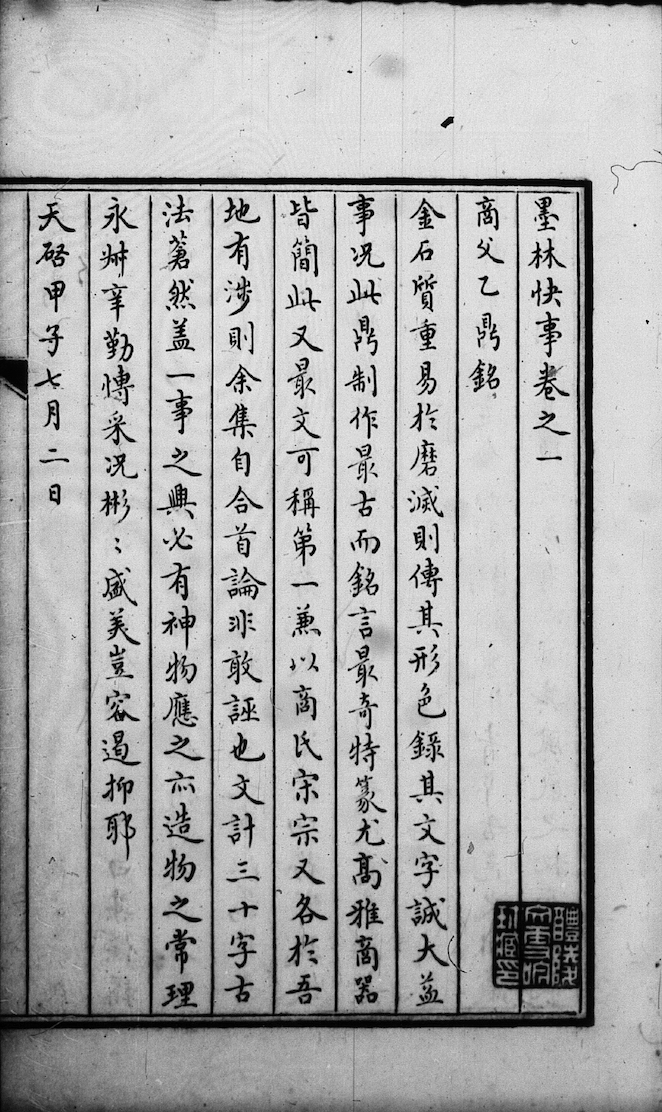 墨林快事卷之一
商父乙鼎銘
金石質重易於磨滅則傳其形色錄其文字誠大益
事况此鼎制作最古而銘言最奇特篆尤高雅商器
皆簡此又最文可稱第一兼以商氏宋宗又各於吾
地有涉則余集自合首論非敢誣也文計三十字古
法蒼然盖一事之興必有神物應之亦造物之常理
永艸辛勤愽采况彬〻盛美豈容遏抑耶
天啓甲子七月二日